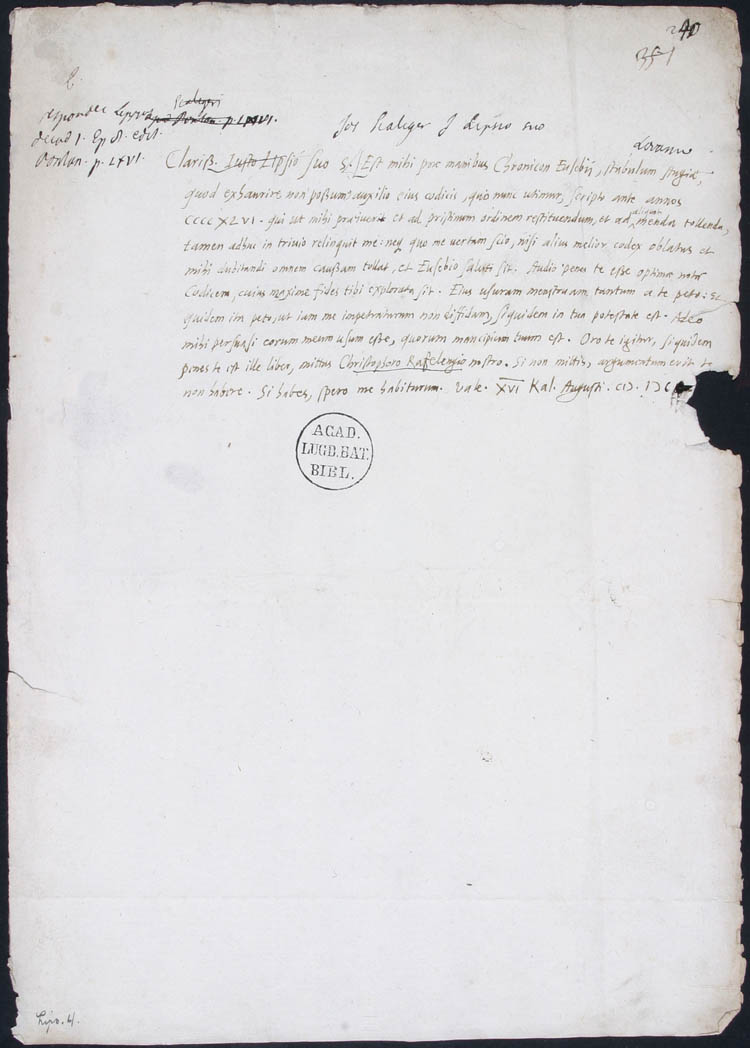 240
351
respondet Lipsius
Scaligeri
p. LXVI.
decad 1. Ep 8. edit.
p. LXVI.
Jos Scaliger J Lipsio suo
Clariss. Iusto Lipsio suo S. Est mihi prae manibus Chronicon Eusebij, stabulum
quod exhaurire non possum auxilio eius codicis, quo nunc utimur, scripto ante annos
CCCC XLVI. qui ut mihi praeiuerit et ad pristinum ordinem restituendum, et ad aliquam menda tollenda,
tamen adhuc in triuio relinquit me: neq. quo me uertam scio, nisi alius melior codex oblatus et
mihi dubitandi omnem caussam tollat, et Eusebio saluti sit. Audio penes te esse optimae notae
codicem, cuius maxime fides tibi explorata sit. Eius usuram menstruam tantum a te peto: Et
quidem ita peto, ut iam me impetraturum non diffidam, siquidem in tua potestate est. Adeo
mihi persuasi eorum meum usum esse, quorum mancipium tuum est. Oro te igitur, siquidem
penes te est ille liber, mittas Christophoro Rafelengio nostro. Si non mittis, argumentum erit te
non habere. Si habes, spero me habiturum. Vale. XVI Kal. Augusti. CIƆ. IƆC
ACAD.
LUGD. BAT.
BIBL.
Lips. 4.